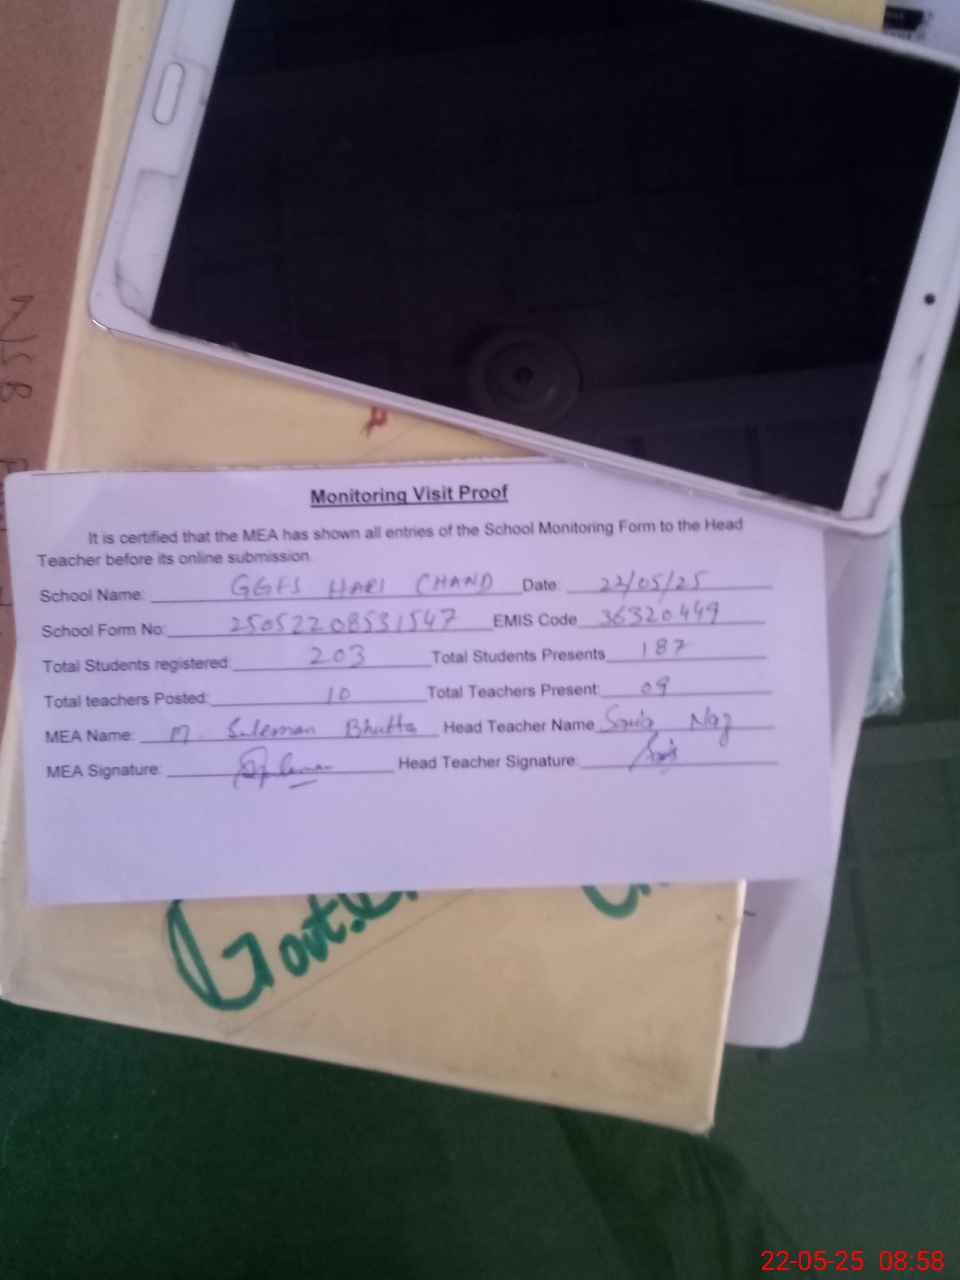 NSB
Monitoring Visit Proof
It is certified that the MEA has shown all entries of the School Monitoring Form to the Head
Teacher before its online submission.
School Name: GGES HARI CHAND Date: 22/05/25
School Form No: 25052208531547 EMIS Code 36320449
Total Students registered: 203 Total Students Presents 187
Total teachers Posted: 10 Total Teachers Present: 09
MEA Name: M. Suleman Bhutta Head Teacher Name Sonia Naz
MEA Signature: Head Teacher Signature:
Govt.
22-05-25 08:58